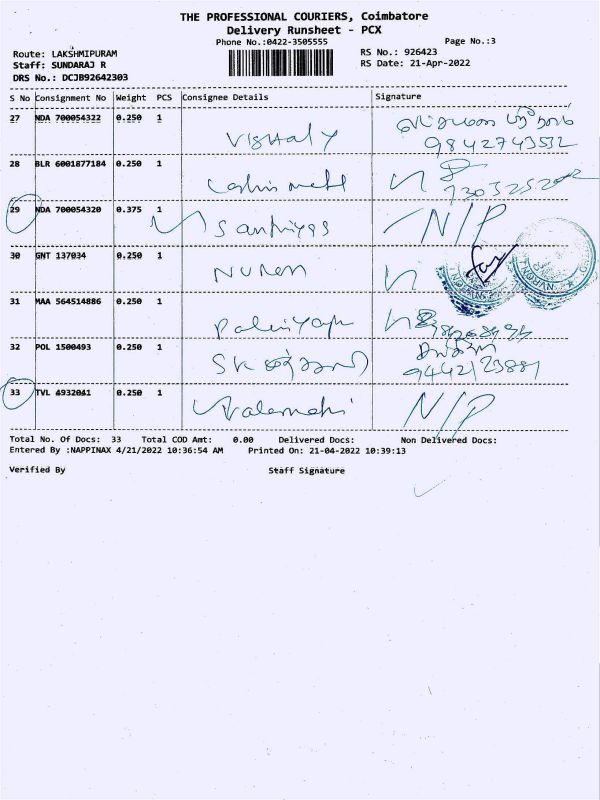 THE PROFESSIONAL COURIERS, Coimbatore
Delivery Runsheet - PCX
Phone No.:0422-3505555
Page No.:3
Route: LAKSHMIPURAM
RS No.: 926423
Staff: SUNDARAJ R
RS Date: 21-Apr-2022
DRS No.: DCJB92642303
S No Consignment No Weight PCS Consignee Details Signature
27 NDA 700054322 0.250 1
Vishal y
9842743532
28 BLR 6001877184 0.250 1
29 NDA 700054320 0.375 1
N/P
30 GNT 137034 0.250 1
Nuren
31 MAA 564514886 0.250 1
32 POL 1500493 0.250 1
SK
9442123881
33 TVL 4932041 0.250 1
N/P
Total No. Of Docs: 33 Total COD Amt: 0.00 Delivered Docs: Non Delivered Docs:
Entered By :NAPPINAX 4/21/2022 10:36:54 AM Printed On: 21-04-2022 10:39:13
Verified By Staff Signature